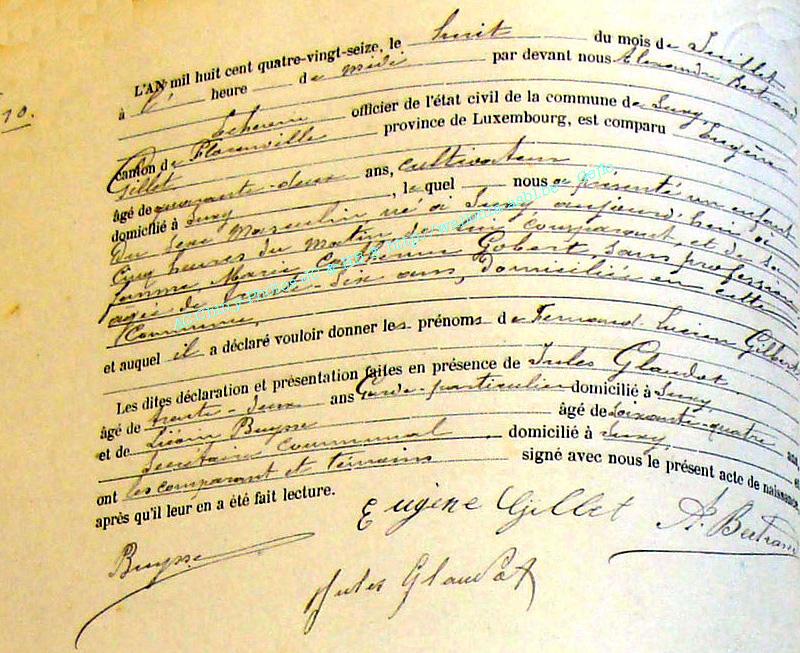 L'AN mil huit cent quatre-vingt-seize, le huit du mois de Juillet
à heure de midi par devant nous Alexandre Bertrand
10. Echevin officier de l'état civil de la commune de Suxy,
canton de Florenville province de Luxembourg, est comparu Eugène
Gillet
âgé de quarante-deux ans, cultivateur
domicilié à Suxy, lequel nous a présenté un enfant
du sexe Masculin, né à Suxy aujourd'hui à
cinq heures du matin, de lui comparant, et de sa
femme, Marie Catherine Gobert, sans profession
agée de trente-six ans, domiciliés en cette
Commune,
et auquel il a déclaré vouloir donner les prénoms de Fernand Lucien Gilbert
Les dites déclaration et présentation faites en présence de Jules Glaudot
âgé de trente-deux ans Garde-particulier domicilié à Suxy
et de Buysse âgé de soixante-quatre ans
Secrétaire Communal domicilié à Suxy, et
ont les comparant et témoins signé avec nous le présent acte de naissance
après qu'il leur en a été fait lecture.
Eugène Gillet A. Bertrand
Buysse
Jules Glaudot